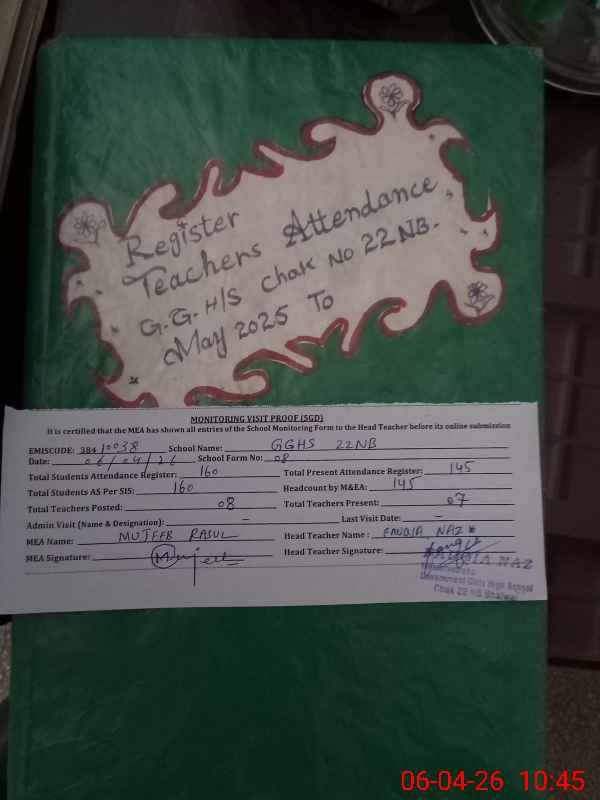 Register
Teachers Attendance
G.G.H/S Chak No 22 NB.
May 2025 To
MONITORING VISIT PROOF (SGD)
It is certified that the MEA has shown all entries of the School Monitoring Form to the Head Teacher before its online submission
EMISCODE: 38410038 School Name: GGHS 22NB
Date: 06/04/26 School Form No: 08
Total Students Attendance Register: 160 Total Present Attendance Register: 145
Total Students AS Per SIS: 160 Headcount by M&EA: 145
Total Teachers Posted: 08 Total Teachers Present: 07
Admin Visit (Name & Designation): - Last Visit Date: -
MEA Name: MUJEEB RASUL Head Teacher Name: FAUQIA NAZ
MEA Signature: Mujeeb Head Teacher Signature:
NAZ
Government Girls High School
Chak 22 NB
06-04-26 10:45